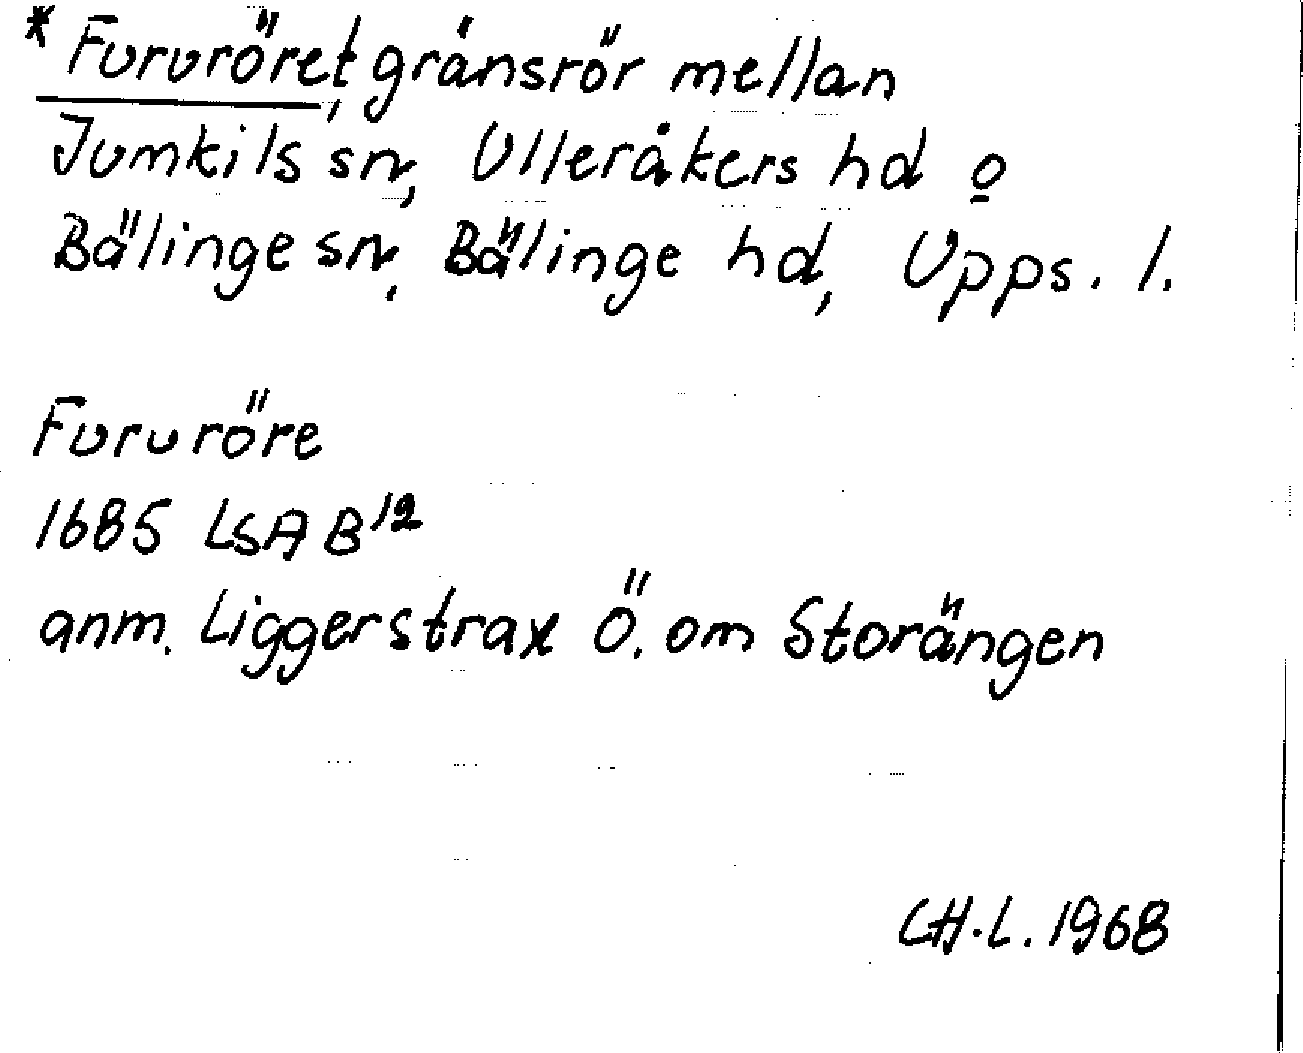 * Fururöret, gränsrör mellan
Jumkils sn, Ulleråkers hd o
Bälinge sn, Bälinge hd, Upps. l.
Fururöre
1685 LSA B 12
anm. Ligger strax Ö. om Storängen
CH.L. 1968